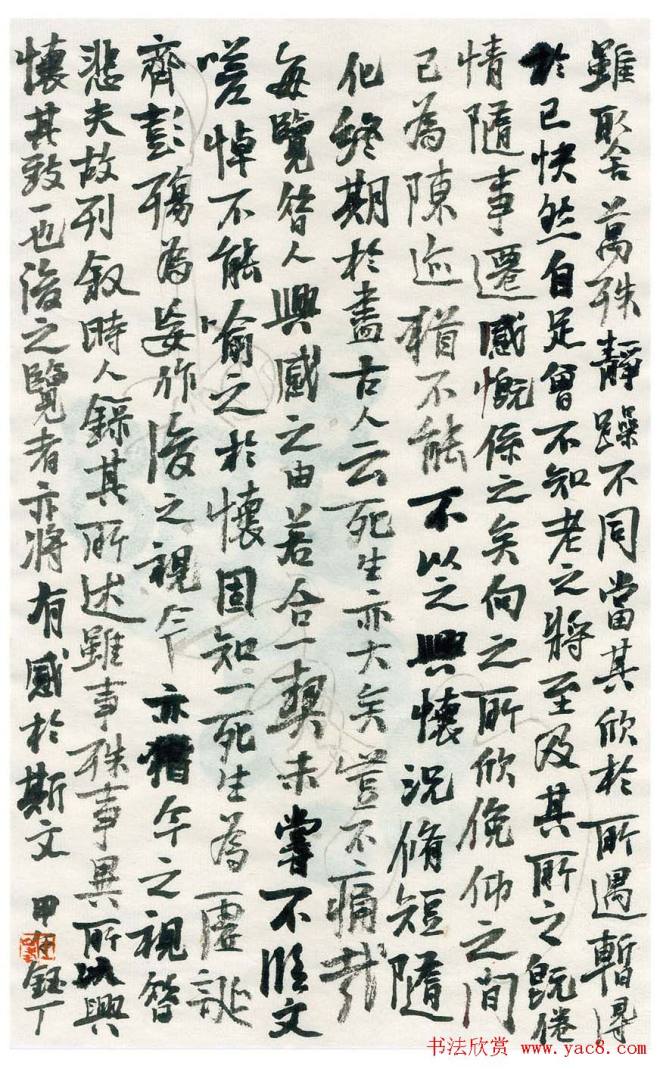 雖取舍萬殊靜躁不同當其欣於所遇暫得
於己快然自足曾不知老之將至及其所之既倦
情隨事遷感慨係之矣向之所欣俛仰之間
已為陳迹猶不能不以之興懷況脩短隨
化終期於盡古人云死生亦大矣豈不痛哉
每覽昔人興感之由若合一契未嘗不臨文
嗟悼不能喻之於懷固知一死生為虛誕
齊彭殤為妄作後之視今亦猶今之視昔
悲夫故列叙時人錄其所述雖事殊事異所以興
懷其致一也後之覽者亦將有感於斯文 甲午鈺丁
书法欣赏 www.yac8.com